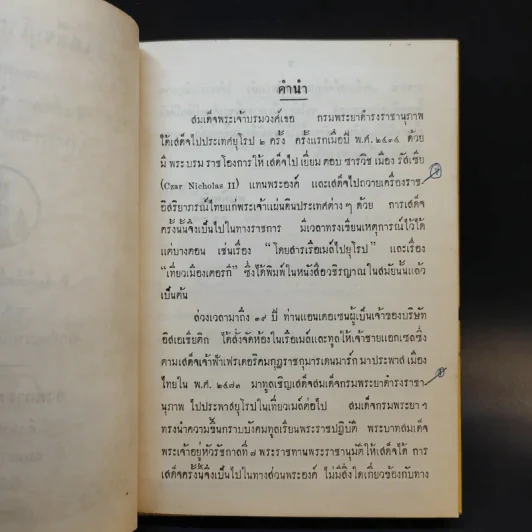 คำนำ
สมเด็จพระเจ้าบรมวงศ์เธอ กรมพระยาดำรงราชานุภาพ
ได้เสด็จไปประเทศยุโรป ๒ ครั้ง ครั้งแรกเมื่อปี พ.ศ. ๒๔๓๔ ด้วย
มี พระบรม ราชโองการให้ เสด็จไป เยี่ยม ตอบ ซารวิช เมือง รัสเซีย
(Czar Nicholas II) แทนพระองค์ และเสด็จไปถวายเครื่องราช-
อิสริยาภรณ์ไทยแก่พระเจ้าแผ่นดินประเทศต่าง ๆ ด้วย การเสด็จ
ครั้งนั้นจึงเป็นไปในทางราชการ มีเวลาทรงเขียนเหตุการณ์ไว้ได้
แต่บางตอน เช่นเรื่อง “โดยสารเรือเมล์ไปยุโรป” และเรื่อง
“เที่ยวเมืองเตอรกี” ซึ่งได้พิมพ์ในหนังสือวชิรญาณในสมัยนั้นแล้ว
เป็นต้น
ล่วงเวลามาถึง ๓๙ ปี ท่านแอนเดอเซนผู้เป็นเจ้าของบริษัท
อิสเอเชียติก ได้สั่งจัดห้องในเรือเมล์และทูลให้เจ้าชายแอกเซลซึ่ง
ตามเสด็จเจ้าฟ้าเฟรเดอริคมกุฎราชกุมารเดนมาร์ก มาประพาส เมือง
ไทยใน พ.ศ. ๒๔๗๓ มาทูลเชิญเสด็จสมเด็จกรมพระยาดำรงราชา-
นุภาพ ไปประพาสยุโรปในเที่ยวเมล์ต่อไป สมเด็จกรมพระยา ฯ
ทรงนำความขึ้นกราบบังคมทูลเรียนพระราชปฏิบัติ พระบาทสมเด็จ
พระเจ้าอยู่หัวรัชกาลที่ ๗ พระราชทานพระราชานุมัติให้เสด็จได้ การ
เสด็จครั้งนี้จึงเป็นไปในทางส่วนพระองค์ ไม่มีสิ่งใดเกี่ยวข้องกับทาง